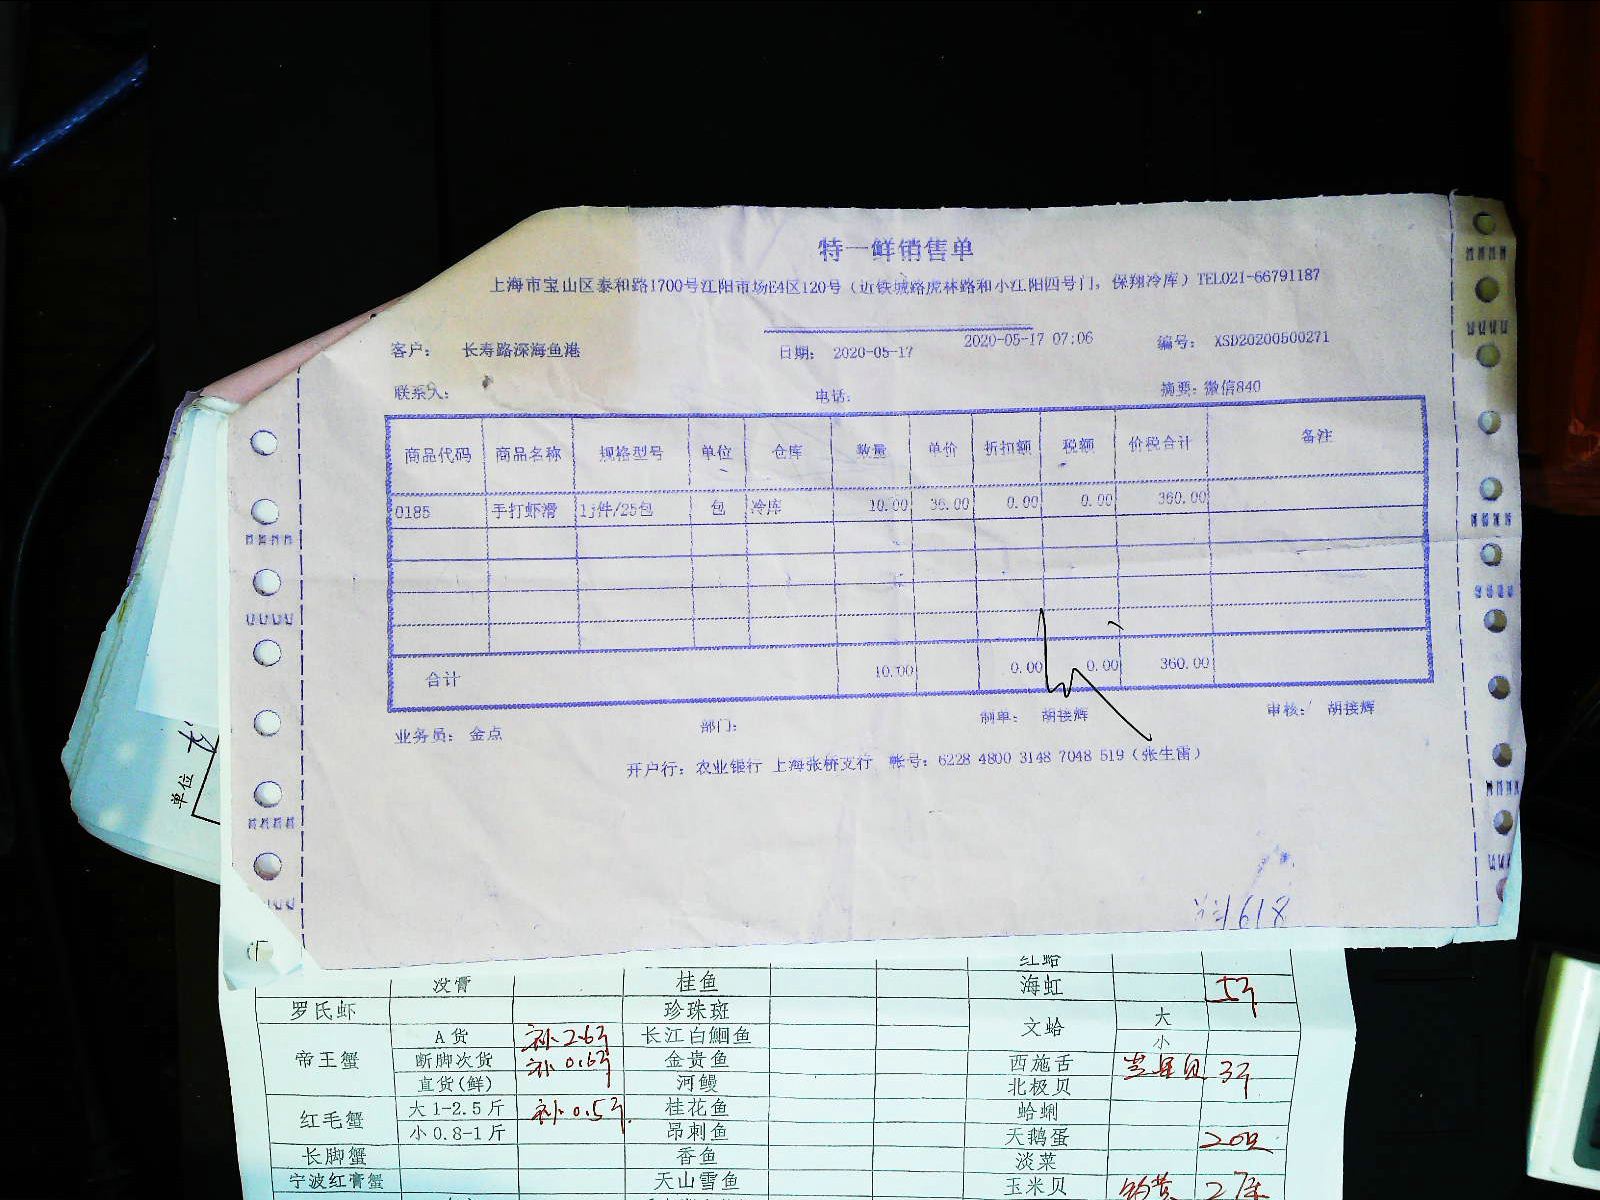 特一鲜销售单
上海市宝山区泰和路1700号江阳市场E4区120号（近铁城路虎林路和小江阳四号门，保翔冷库）TEL021-66791187
客户： 长寿路深海鱼港 日期： 2020-05-17 2020-05-17 07:06 编号： XSD20200500271
联系人： 电话： 摘要：微信840
商品代码 商品名称 规格型号 单位 仓库 数量 单价 折扣额 税额 价税合计 备注
0185 手打虾滑 1j件/25包 包 冷库 10.00 36.00 0.00 0.00 360.00
合计 10.00 0.00 0.00 360.00
业务员： 金点 部门： 制单： 胡接辉 审核： 胡接辉
开户行：农业银行 上海张桥支行 帐号：6228 4800 3148 7048 519（张生雷）
单位
红蛤
没膏 桂鱼 海虹
罗氏虾 珍珠斑
帝王蟹 A 货 补2.6斤 长江白鮰鱼 文蛤 大
小
断脚次货 补0.6斤 金贵鱼 西施舌 3斤
直货(鲜) 河鳗 北极贝
红毛蟹 大1-2.5斤 补0.5斤 桂花鱼 蛤蜊
小0.8-1斤 昂刺鱼 天鹅蛋 20只
长脚蟹 香鱼 淡菜
宁波红膏蟹 天山雪鱼 玉米贝